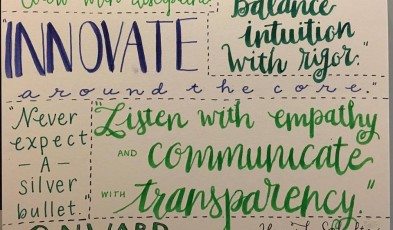 with discipline
"Balance
intuition
with rigor."
"INNOVATE
around the core."
"Never
expect
- A -
silver
bullet."
"Listen with empathy
AND communicate
WITH transparency."
ONWARD